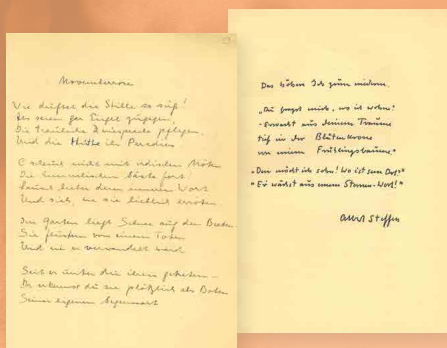 Novemberrose
Wie duftest die Stille so süß!
Als seien zwei Engel zugegen,
Die trauliche Zwiesprache pflegen,
Und die Hütte ihr Paradies
nicht mit irdischen Nöten
Die himmlischen Gäste fort
lieber deren Wort
Und sieh, wie sie lieblich erröten.
Im Garten liegt Schnee auf den Beeten
Sie flüstern von einem Toten
Und wie er verwandelt wird
Seit er unter die ihren getreten –
Da erkennst du sie plötzlich als Boten
Seiner eigenen Gegenwart
Das höhere Ich zum niedern.
"Du fragst mich, wo ich wohne?
Erwacht aus deinem Traume
tief in der Blütenkrone
von meinem Frühlingsbaume"
"Den möcht ich sehn! Wo ist sein Ort?"
"Er wächst aus einem Sternen-Wort!"
Albert Steffen